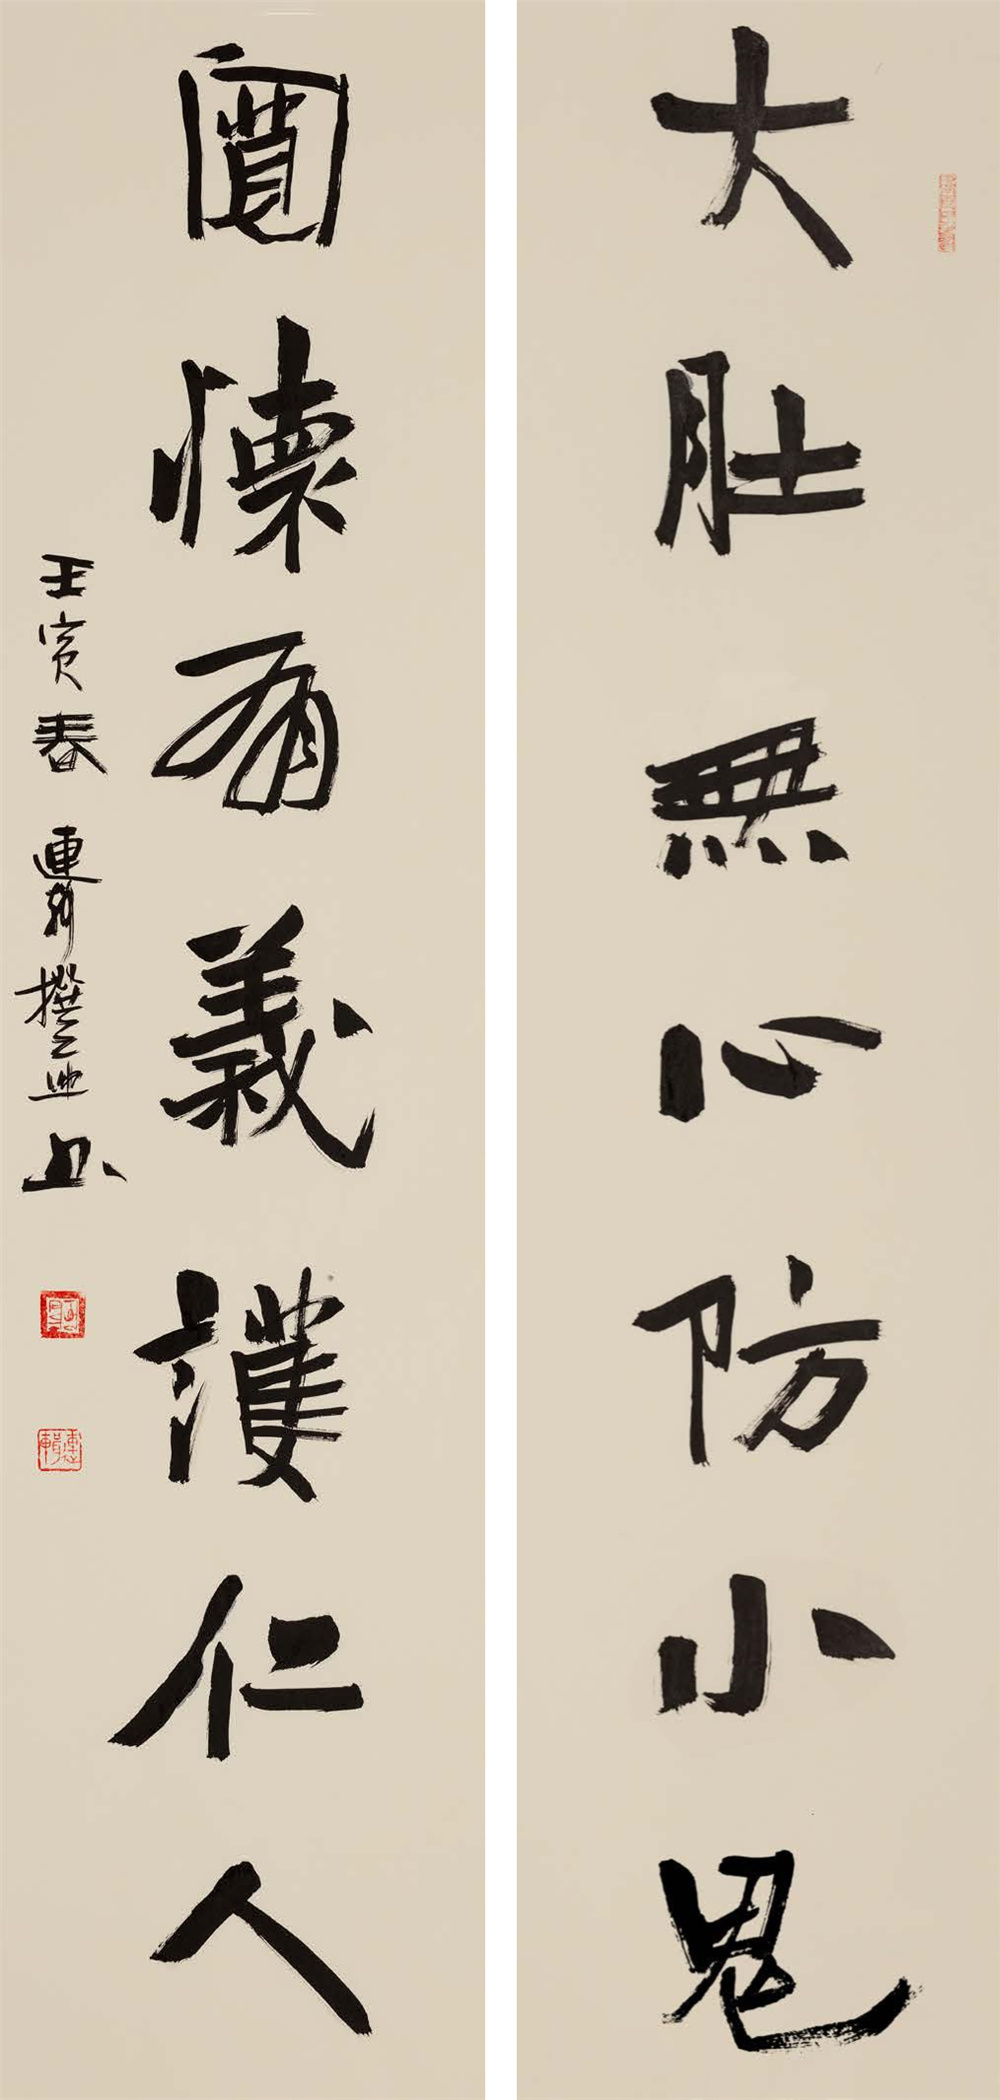 大肚無心防小鬼
圓懷有義護仁人
壬寅春 連輯撰並書